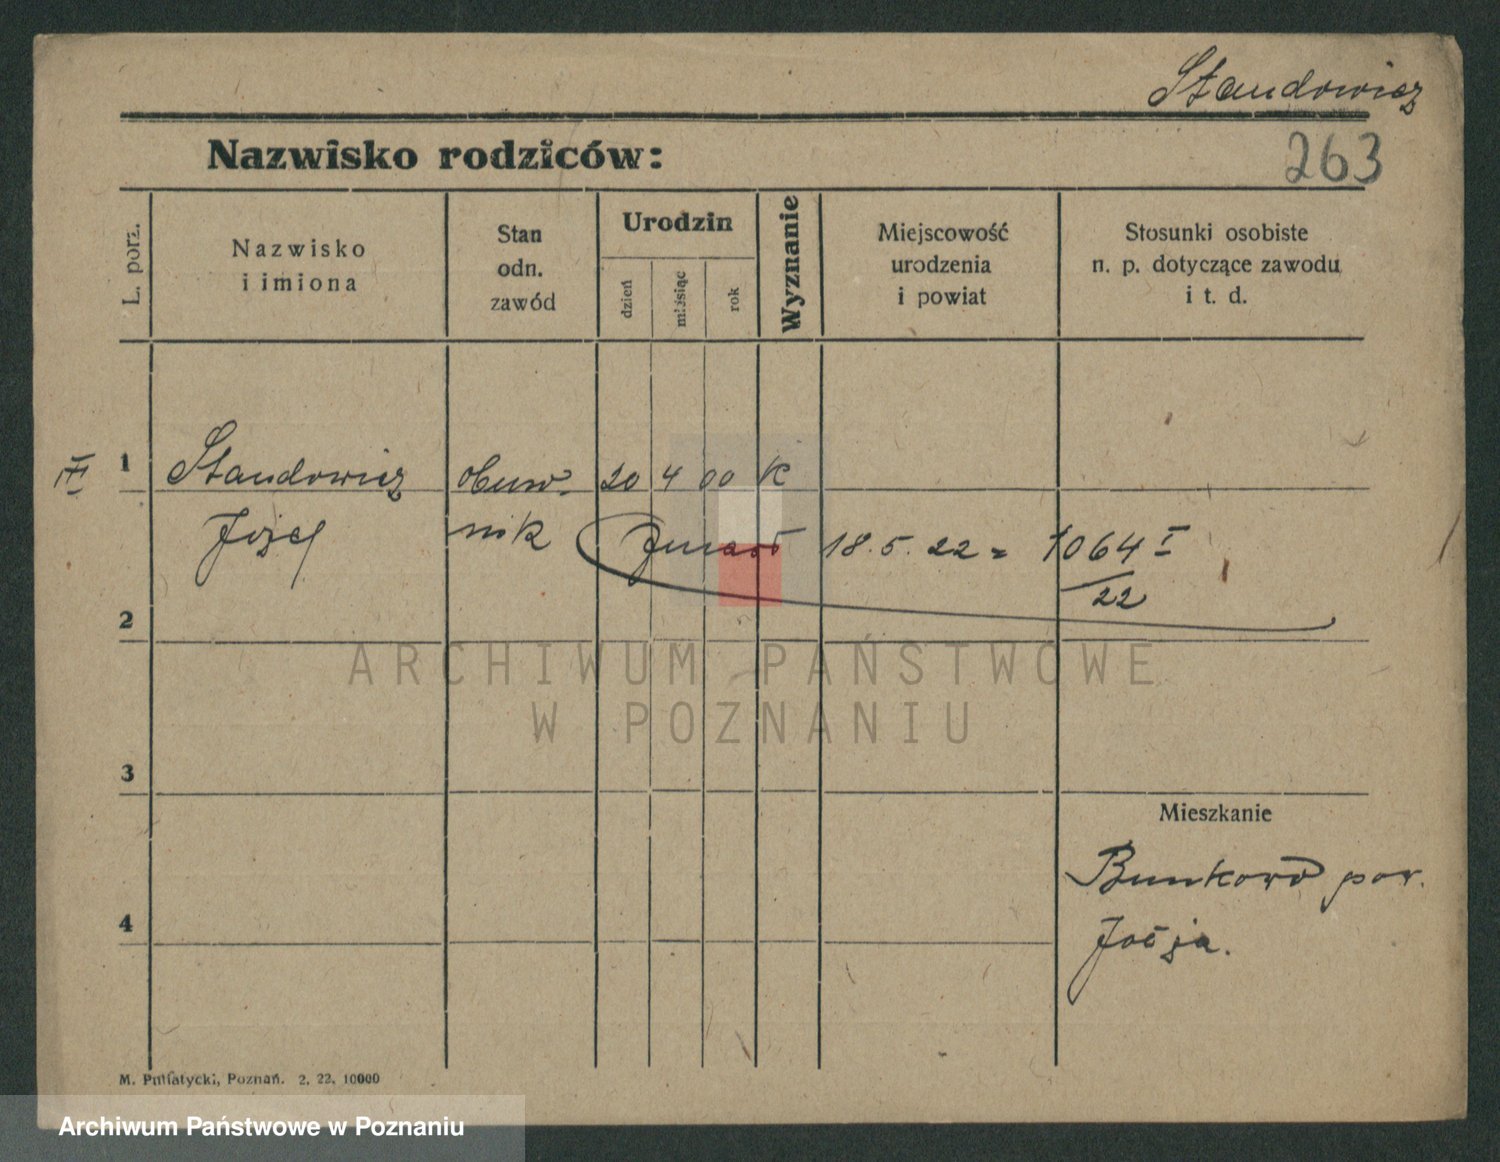 Standowicz
Nazwisko rodziców:
263
L. porz.
Nazwisko
i imiona
Stan
odn.
zawód
Urodzin
dzień
miesiąc
rok
Wyznanie
Miejscowość
urodzenia
i powiat
Stosunki osobiste
n. p. dotyczące zawodu
i t. d.
III 1 Standowicz obuw- 20 4 00 K
Józef nik Zmarł 18.5.22 = 1064 I
22
2
ARCHIWUM PAŃSTWOWE
W POZNANIU
3
Mieszkanie
4
pow.
M. Putiatycki, Poznań. 2. 22. 10000
Archiwum Państwowe w Poznaniu